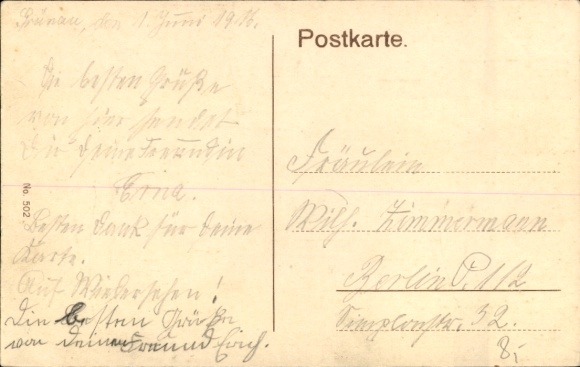 Grünau, den 1. Juni 1913.
Die besten Grüße
von hier sendet
Dir Deine Freundin
Erna.
Besten Dank für Deine
Karte.
Auf Wiedersehen!
Die besten Grüße
von Deinem Freund Erich.
No. 502
Postkarte.
Fräulein
Wilh. Zimmermann
Berlin O. 112
Simplonstr. 32.
8,-